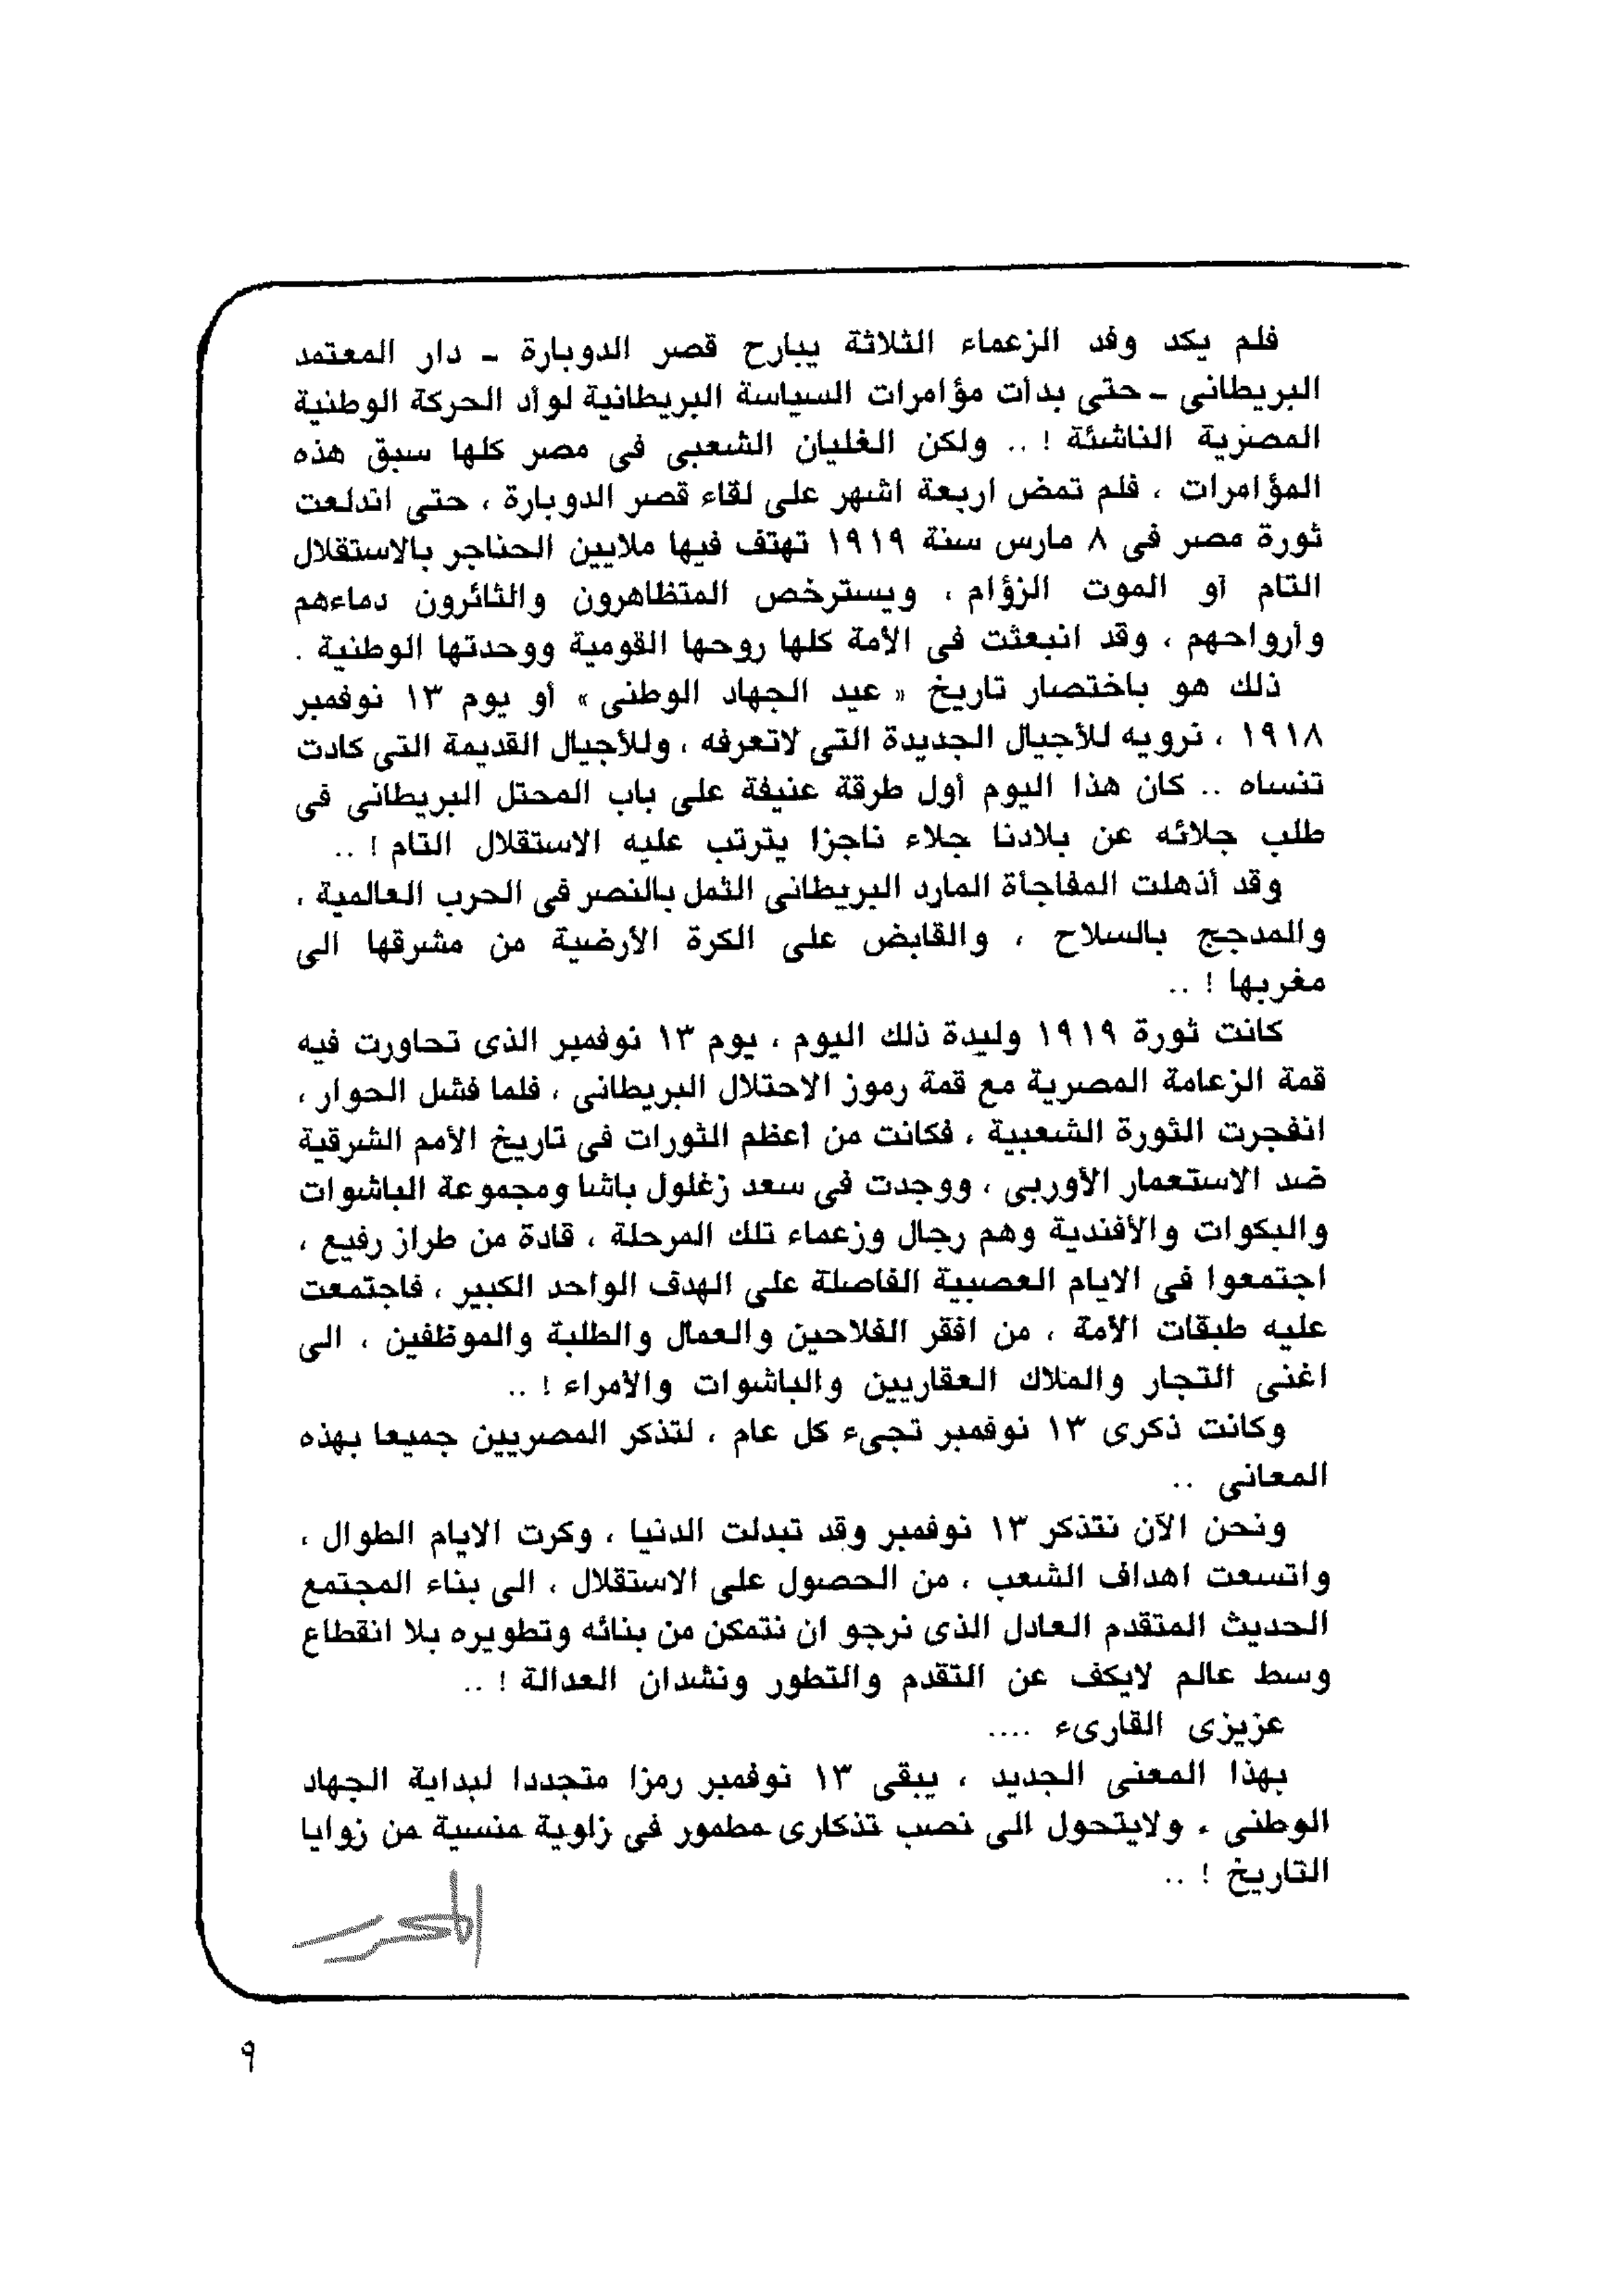 فلم يكد وفد الزعماء الثلاثة يبارح قصر الدوبارة - دار المعتمد
البريطانى - حتى بدأت مؤامرات السياسة البريطانية لوأد الحركة الوطنية
المصرية الناشئة ! .. ولكن الغليان الشعبى فى مصر كلها سبق هذه
المؤامرات ، فلم تمض اربعة اشهر على لقاء قصر الدوبارة ، حتى اندلعت
ثورة مصر فى ٨ مارس سنة ١٩١٩ تهتف فيها ملايين الحناجر بالاستقلال
التام أو الموت الزؤام ، ويسترخص المتظاهرون والثائرون دماءهم
وأرواحهم ، وقد انبعثت فى الأمة كلها روحها القومية ووحدتها الوطنية .
ذلك هو باختصار تاريخ « عيد الجهاد الوطنى » أو يوم ١٣ نوفمبر
١٩١٨ ، نرويه للأجيال الجديدة التى لاتعرفه ، وللأجيال القديمة التى كادت
تنساه .. كان هذا اليوم أول طرقة عنيفة على باب المحتل البريطانى فى
طلب جلائه عن بلادنا جلاء ناجزا يترتب عليه الاستقلال التام ! ..
وقد أذهلت المفاجأة المارد البريطانى الثمل بالنصر فى الحرب العالمية ،
والمدجج بالسلاح ، والقابض على الكرة الأرضية من مشرقها الى
مغربها ! ..
كانت ثورة ١٩١٩ وليدة ذلك اليوم ، يوم ١٣ نوفمبر الذى تحاورت فيه
قمة الزعامة المصرية مع قمة رموز الاحتلال البريطانى ، فلما فشل الحوار ،
انفجرت الثورة الشعبية ، فكانت من اعظم الثورات فى تاريخ الأمم الشرقية
ضد الاستعمار الأوربى ، ووجدت فى سعد زغلول باشا ومجموعة الباشوات
والبكوات والأفندية وهم رجال وزعماء تلك المرحلة ، قادة من طراز رفيع ،
اجتمعوا فى الايام العصيبة الفاصلة على الهدف الواحد الكبير ، فاجتمعت
عليه طبقات الأمة ، من افقر الفلاحين والعمال والطلبة والموظفين ، الى
اغنى التجار والملاك العقاريين والباشوات والأمراء ! ..
وكانت ذكرى ١٣ نوفمبر تجىء كل عام ، لتذكر المصريين جميعا بهذه
المعانى ..
ونحن الآن نتذكر ١٣ نوفمبر وقد تبدلت الدنيا ، وكرت الايام الطوال ،
واتسعت اهداف الشعب ، من الحصول على الاستقلال ، الى بناء المجتمع
الحديث المتقدم العادل الذى نرجو ان نتمكن من بنائه وتطويره بلا انقطاع
وسط عالم لايكف عن التقدم والتطور ونشدان العدالة ! ..
عزيزى القارىء ....
بهذا المعنى الجديد ، يبقى ١٣ نوفمبر رمزا متجددا لبداية الجهاد
الوطنى ، ولايتحول الى نصب تذكارى مطمور فى زاوية منسية من زوايا
التاريخ ! ..
المحرر
٩